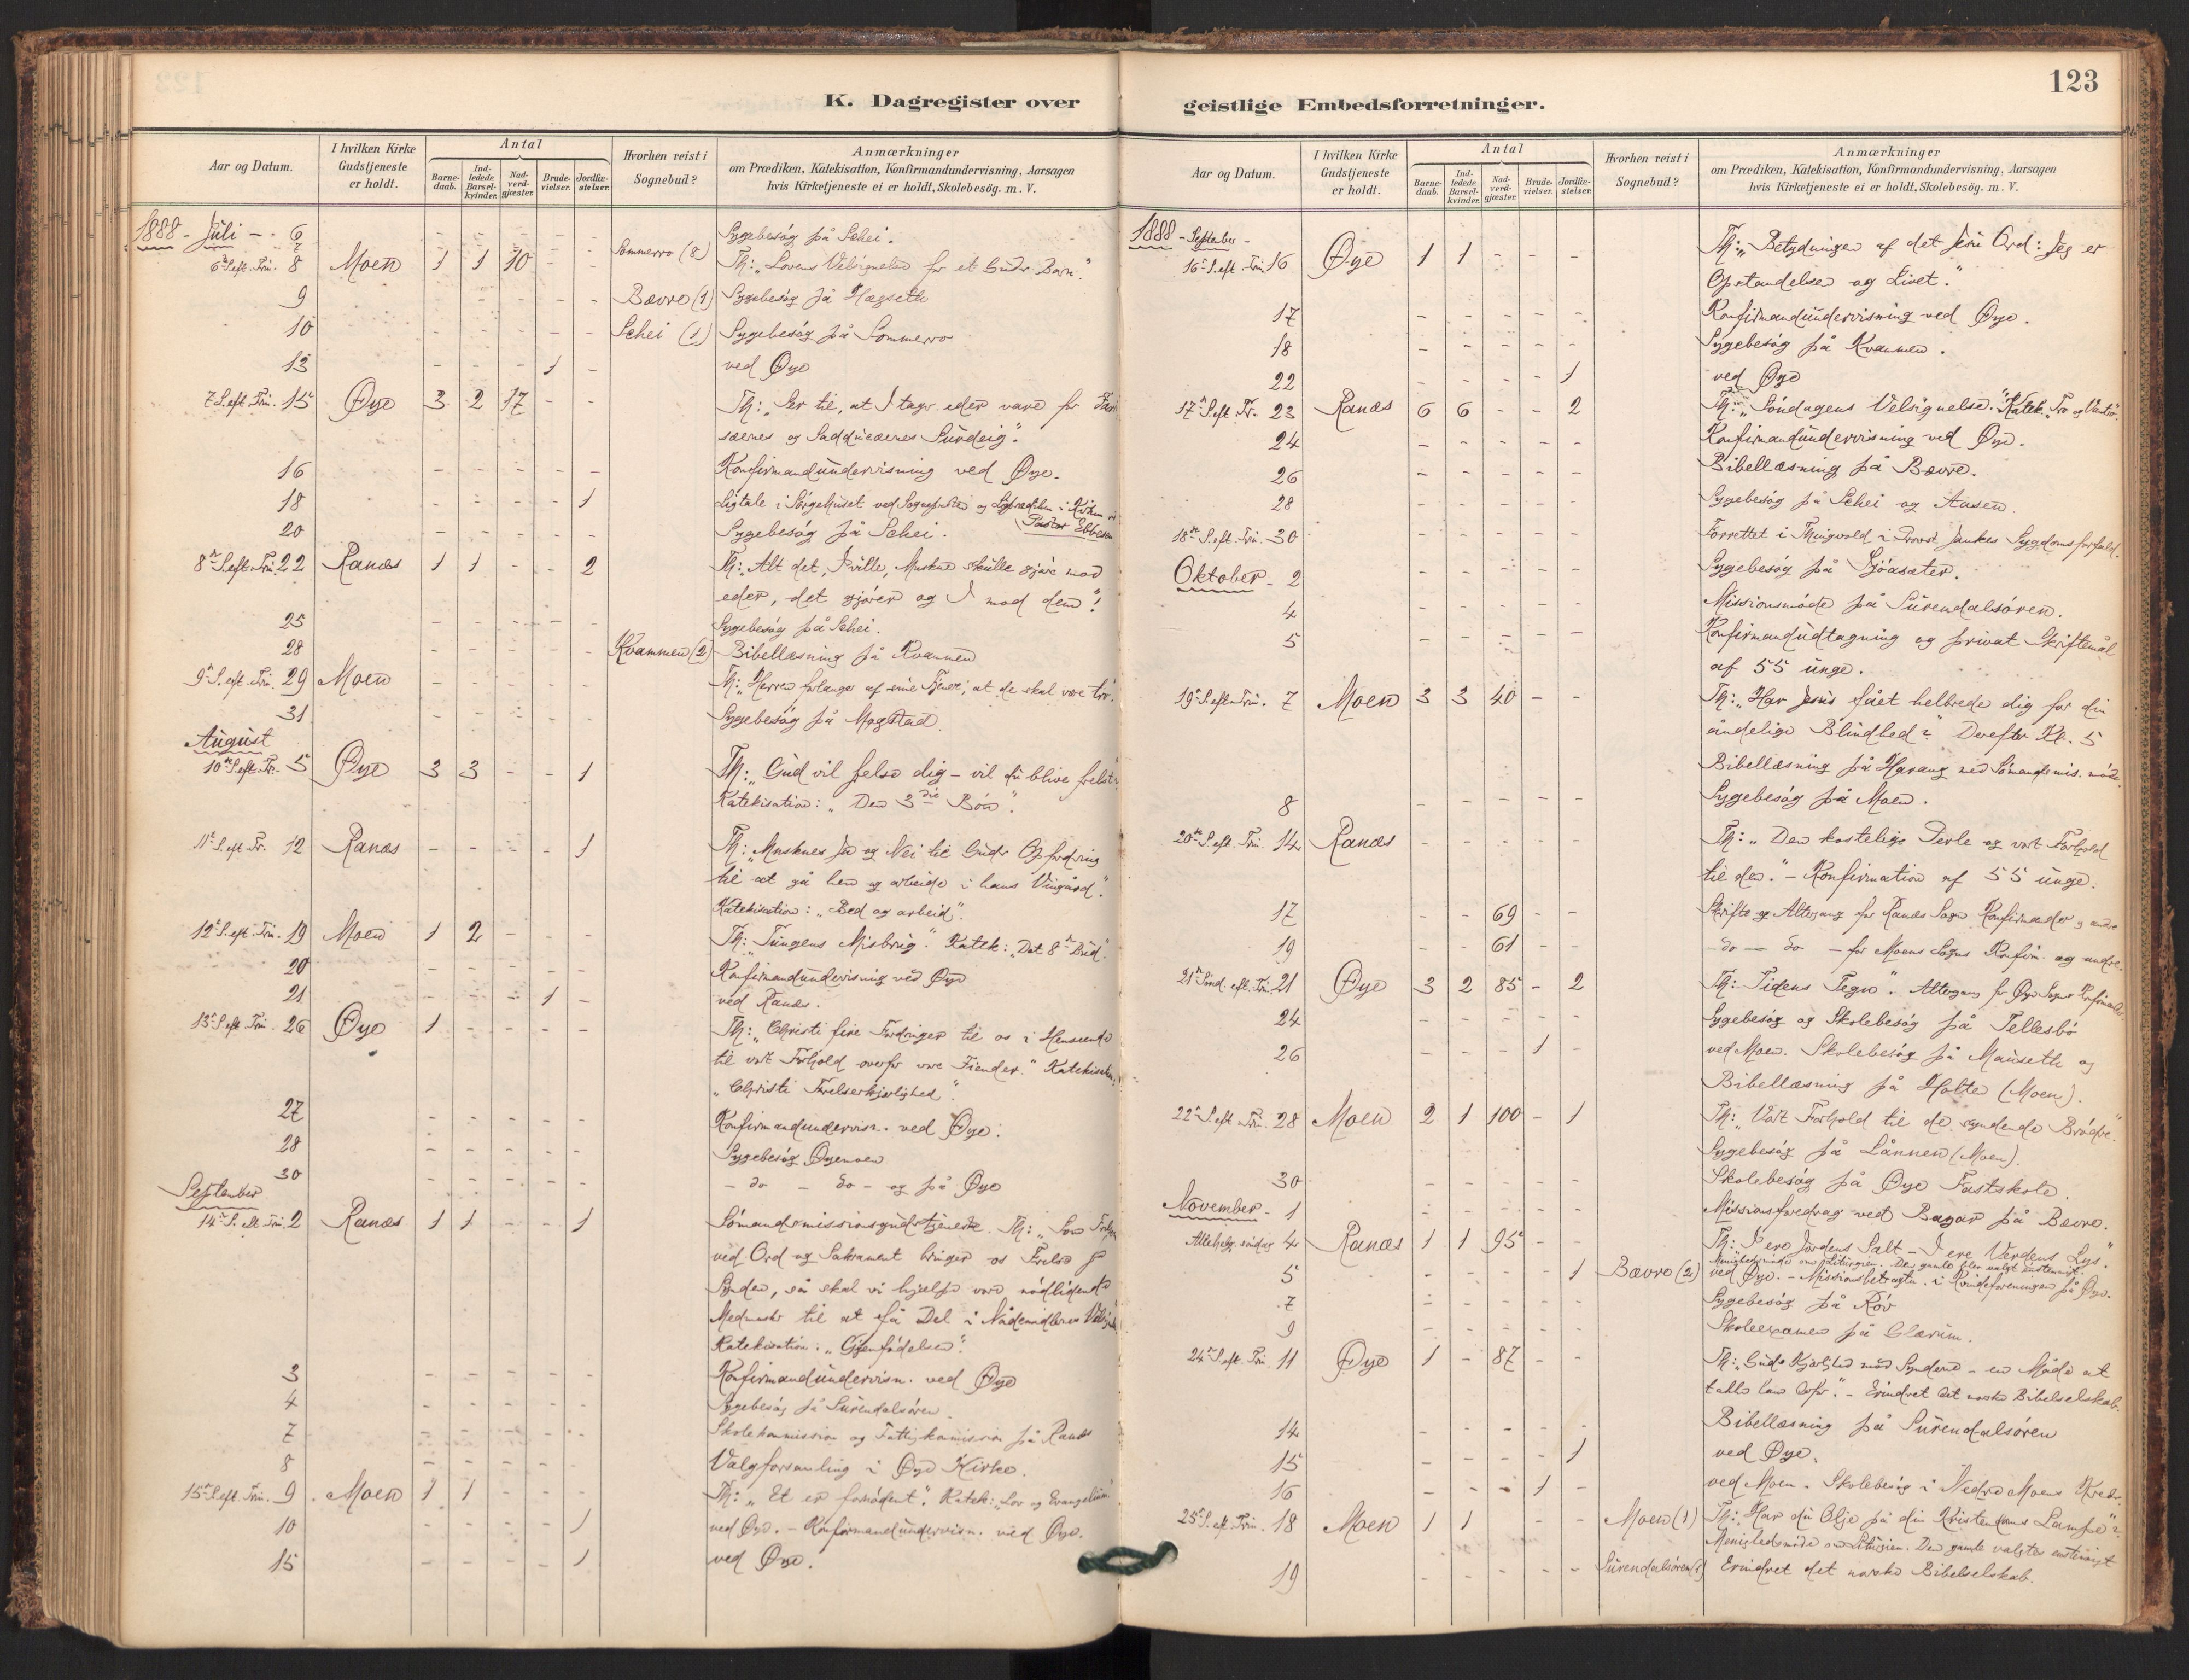 123
K. Dagregister over geistlige Embedsforretninger.
Aar og Datum. I hvilken Kirke Gudstjeneste er holdt. Antal Barnedaab. Indledede Barselkvinder. Nadverdgjæster. Brudevielser. Jordfæstelser. Hvorhen reist i Sognebud? Anmærkninger om Prædiken, Katekisation, Konfirmandundervisning, Aarsagen hvis Kirketjeneste ei er holdt, Skolebesög. m. V.
1888 - Juli - 6 - - - - - Sygebesøg på Schei.
7
6te S. eft. Trin. 8 Moen 1 1 10 - - Sommerro (8) Th: „Lovens Velsignelse for et Guds Barn."
9 - - - - - Bævre (1) Sygebesøg på Hægseth
10 - - - - - Schei (1) Sygebesøg på Sommerro
13 - - - 1 - ved Øye
7 S. eft. Trin. 15 Øye 3 2 17 - - Th: „Ser til, at I tager eder vare for
sæernes og Sadducæernes Surdeig."
16 - - - - - Konfirmandundervisning ved Øye.
18 - - - - 1 Ligtale i Sørgehuset ved Sognepresten og Ligprædiken i Kirken
Pastor Ebbesen
20 - - - - - Sygebesøg på Schei.
8de S. eft. Trin. 22 Ranæs 1 1 - - 2 Th: „Alt det, I ville, Mnskne skulle gjøre mod
eder, det gjører og I mod dem!"
25 - - - - - Sygebesøg på Schei.
28 - - - - - Kvammen (2) Bibellæsning på Kvammen
9de S. eft. Trin. 29 Moen - - - - - Th: „Herren forlanger af sine Tjenere, at de skal være tro."
31 - - - - - Sygebesøg på Mogstad
August
10de S. eft. Tr. 5 Øye 3 3 - - 1 Th: „Gud vil frelse dig - vil du blive frelst?"
Katekisation: „Den 3die Bøn".
11te S. eft. Tr. 12 Ranæs - - - - 1 Th: „Mnsknes Ja og Nei til Guds Opfordring
til at gå hen og arbeide i hans Vingård."
Katekisation: „Bed og arbeid".
12te S. eft. Trin. 19 Moen 1 2 - - - Th: „Tungens Misbrug." Katek: „Det 8de Bud".
20 - - - - - Konfirmandundervisnig ved Øye
21 - - - 1 - ved Ranæs.
13de S. eft. Trin. 26 Øye 1 - - - - Th: „Christi fire Fordringer til os i Henseende
til vort Forhold overfor vore Fiender." Katekisation:
„Christi Frelserkjærlighed".
27 - - - - - Konfirmandundervisn. ved Øye.
28 - - - - - Sygebesøg Øyemoen
30 - - - - - - do - do - og på Øye
September
14de S. eft. Trin. 2 Ranæs 1 1 - - 1 Sømandsmissionsgudstjeneste. Th: „Som
ved Ord og Sakrament bringer os Frelse f
Synden, så skal vi hjælpe vore nødlidende
Medmnskr til at få Del i Nådemidlernes
Katekisation: „Gjenfødelsen".
3 - - - - - Konfirmandundervisn. ved Øye
4 - - - - - Sygebesøg på Surendalsøren.
7 - - - - - Skolekommission og Fattigkommission på Ranæs
8 - - - - - Valgforsamling i Øye Kirke.
15de S. eft. Trin. 9 Moen 1 1 Th: „Et er fornødent". Katek: „Lov og Evangelium"
10 - - - - 1 ved Øye. - Konfirmandundervisn. ved Øye.
15 - - - - 1 ved Øye.
Aar og Datum. I hvilken Kirke Gudstjeneste er holdt. Antal Barnedaab. Indledede Barselkvinder. Nadverdgjæster. Brudevielser. Jordfæstelser. Hvorhen reist i Sognebud? Anmærkninger om Prædiken, Katekisation, Konfirmandundervisning, Aarsagen hvis Kirketjeneste ei er holdt, Skolebesög. m. V.
1888 - September -
16de S. eft. Trin. 16 Øye 1 1 - - - Th: „Betydningen af det Jesu Ord: Jeg er
Opstandelsen og Livet."
17 - - - - - Konfirmandundervisning ved Øye.
18 - - - - - Sygebesøg på Kvammen.
22 - - - - 1 ved Øye
17de S. eft. Tr. 23 Ranæs 6 6 - - 2 Th: „Søndagens Velsignelse." Katek.
24 - - - - - Konfirmandundervisning ved Øye.
26 - - - - - Bibellæsning på Bævre.
28 - - - - - Sygebesøg på Schei og Aasen.
18de S. eft. Trin. 30 - - - - - Forrettet i Thingvold i Provst Jankes Sygdomsforfald.
Oktober - 2 - - - - - Sygebesøg på Sjøasæter.
4 - - - - - Missionsmøde på Surendalsøren.
5 - - - - - Konfirmandudtagning og privat Skriftemål
af 55 unge.
19de S. eft. Trin. 7 Moen 3 3 40 - - Th: „Har Jesus fået helbrede dig for din
åndelige Blindhed?" Derefter Kl. 5
Bibellæsning på Harang ved Sømandsmis. møde
8 - - - - - Sygebesøg på Moen.
20de S. eft. Trin. 14 Ranæs - - - - - Th: „Den kostelige Perle og vort Forhold
til den." - Konfirmation af 55 unge.
17 - - 69 - - Skrifte og Altergang for Ranæs Sogns Konfirmander og andre
19 - - 61 - - - do - do - for Moens Sogns Konfirm. og andre.
21de Sønd. eft. Tri. 21 Øye 3 2 85 - 2 Th: „Tidens Tegn". Altergang for Øye Sogns Konfirmander
24 - - - - - Sygebesøg og Skolebesøg på Tellesbø
26 - - - 1 - ved Moen. Skolebesøg på Mauseth og
Bibellæsning på Holte (Moen).
22de S. eft. Trin. 28 Moen 2 1 100 - 1 Th: „Vort Forhold til de syndende Brødre".
Sygebesøg på Lånnen (Moen).
30 - - - - - Skolebesøg på Øye Fastskole.
November - 1 - - - - - Missionsforedrag ved Bazar på Bævre.
Allehelg. søndag 4 Ranæs 1 1 95 - - Th: „I ere Jordens Salt - I ere Verdens Lys."
Menighedsmøde om Liturgien. Den gamle blev valgt enstemmigt.
5 - - - - 1 Bævre (2) ved Øye. - Missionsbetragtn. i Kvindeforeningen på Øye.
7 - - - - - Sygebesøg på Røv
9 - - - - - Skoleexamen på Glærum.
24de S. eft. Tri. 11 Øye 1 - 87 - - Th: „Guds Kjærlighed mod Syndere - en Måde at
takke ham derfor." - Erindret det norske Bibelselskab.
14 - - - - - Bibellæsning på Surendalsøren
15 - - - - 1 ved Øye.
16 - - - 1 - ved Moen. Skolebesøg i Nedre Moens Kreds
25de S. eft. Trin. 18 Moen 1 1 - - Moen (1) Th: „Har du Olje på din Kristendoms Lampe"?
Menighedsmøde om Liturgien. Den gamle valgtes enstemmigt
19 - - - - - Surendalsøren (1) Erindret det norske Bibelselskab.